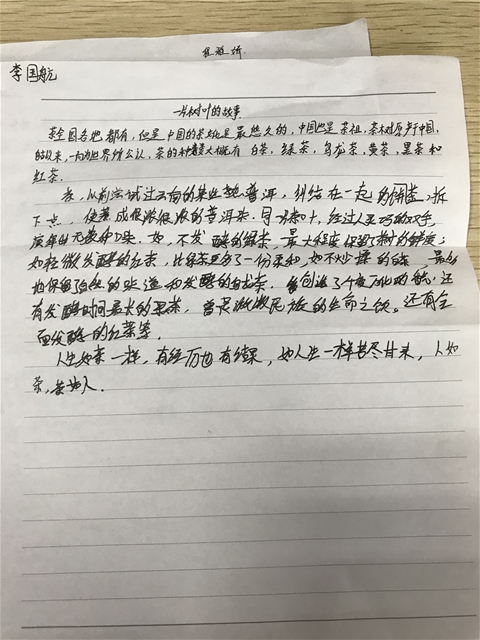 崔雅娇
李国航
一片树叶的故事
茶全国各地都有,但是中国的茶文化是最悠久的,中国也是茶祖,茶树原产于中国,
以来,一向为世界所公认,茶的种类大概有 白茶,绿茶,乌龙茶,黄茶,黑茶和
红茶。
我,以前尝试过云南的茶 普洱,纠结在一起的饼茶,拆
下一点,便煮成很浓很浓的普洱茶。同一片茶叶,经过人工巧的双手
演变出无数种口味。如,不发酵的绿茶,最大程度保留了茶的鲜度;
如轻微发酵的白茶,比绿茶更多了一份柔和,如不炒不揉的 最多
地保留了自然的味道和发酵的乌龙茶,创造了千变万化的 ,还
有发酵时间最长的黑茶,曾是 民族的生命之饮。还有全
面发酵的红茶等。
人生如茶一样,有经历也有结果,如人生一样苦尽甘来,人如
茶,茶如人。